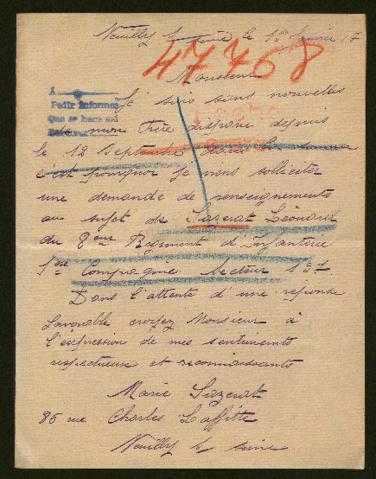 Neuilly le 15 17
47768
Monsieur
A
Pedir informes
Que se hará
Je suis sans nouvelles
de mon frère disparu depuis
le 12 Septembre dans la
c'est pourquoi je vous sollicite
une demande de renseignements
au sujet de Lazerat Léonard
du 8ème Régiment d'Infanterie
1ère Compagnie Secteur 131
Dans l'attente d'une réponse
favorable croyez Monsieur à
l'expression de mes sentiments
respectueux et reconnaissants
Marie Lazerat
85 rue Charles Laffitte
Neuilly s/ seine